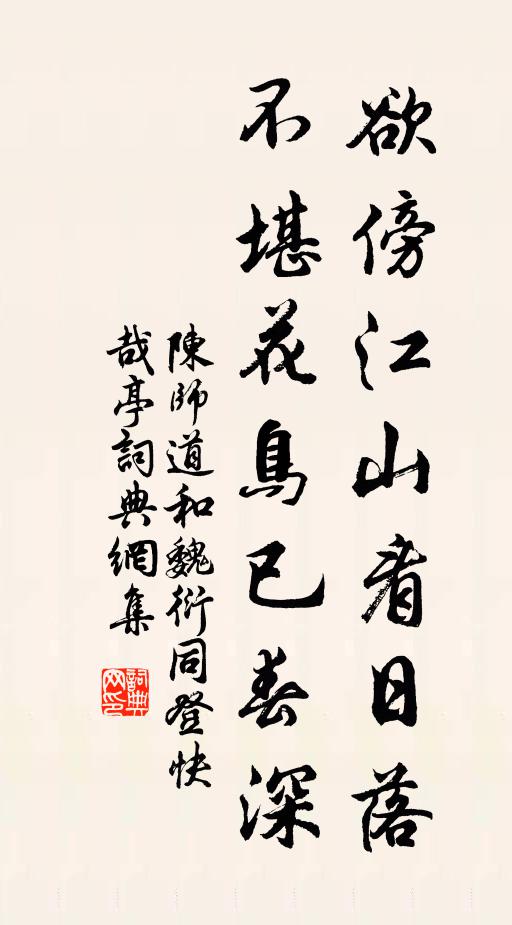 欲傍江山看日落
不堪花鳥已春深
陳師道和魏衍同登快
哉亭詞典網集
詞典网印